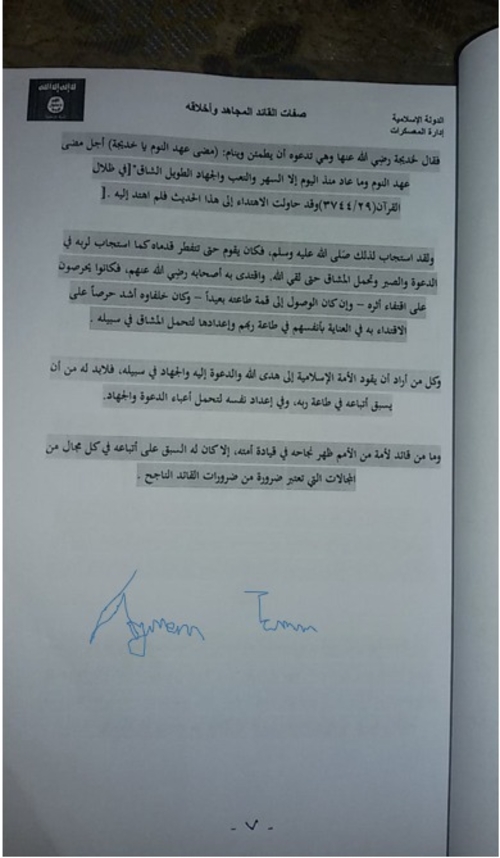 لا إله إلا الله
صفات القائد المجاهد وأخلاقه
الدولة الإسلامية
إدارة المعسكرات
فقال لخديجة رضي الله عنها وهي تدعوه أن يطمئن وينام: (مضى عهد النوم يا خديجة) أجل مضى
عهد النوم وما عاد منذ اليوم إلا السهر والتعب والجهاد الطويل الشاق"[في ظلال
القرآن(٣٧٤٤/٢٩)وقد حاولت الاهتداء إلى هذا الحديث فلم اهتد إليه .[
ولقد استجاب لذلك صَلى الله عليه وسلم، فكان يقوم حتى تتفطر قدماه كما استجاب لربه في
الدعوة والصبر وتحمل المشاق حتى لقي الله. واقتدى به أصحابه رضي الله عنهم، فكانوا يحرصون
على اقتفاء أثره – وإن كان الوصول إلى قمة طاعته بعيداً – وكان خلفاوه أشد حرصاً على
الاقتداء به في العناية بأنفسهم في طاعة ربهم وإعدادها لتحمل المشاق في سبيله .
وكل من أراد أن يقود الأمة الإسلامية إلى هدى الله والدعوة إليه والجهاد في سبيله، فلابد له من أن
يسبق أتباعه في طاعة ربه، وفي إعداد نفسه لتحمل أعباء الدعوة والجهاد.
وما من قائد لأمة من الأمم ظهر نجاحه في قيادة أمته، إلا كان له السبق على أتباعه في كل مجال من
المجالات التي تعتبر ضرورة من ضرورات القائد الناجح .
Aymenn
- ٧ -